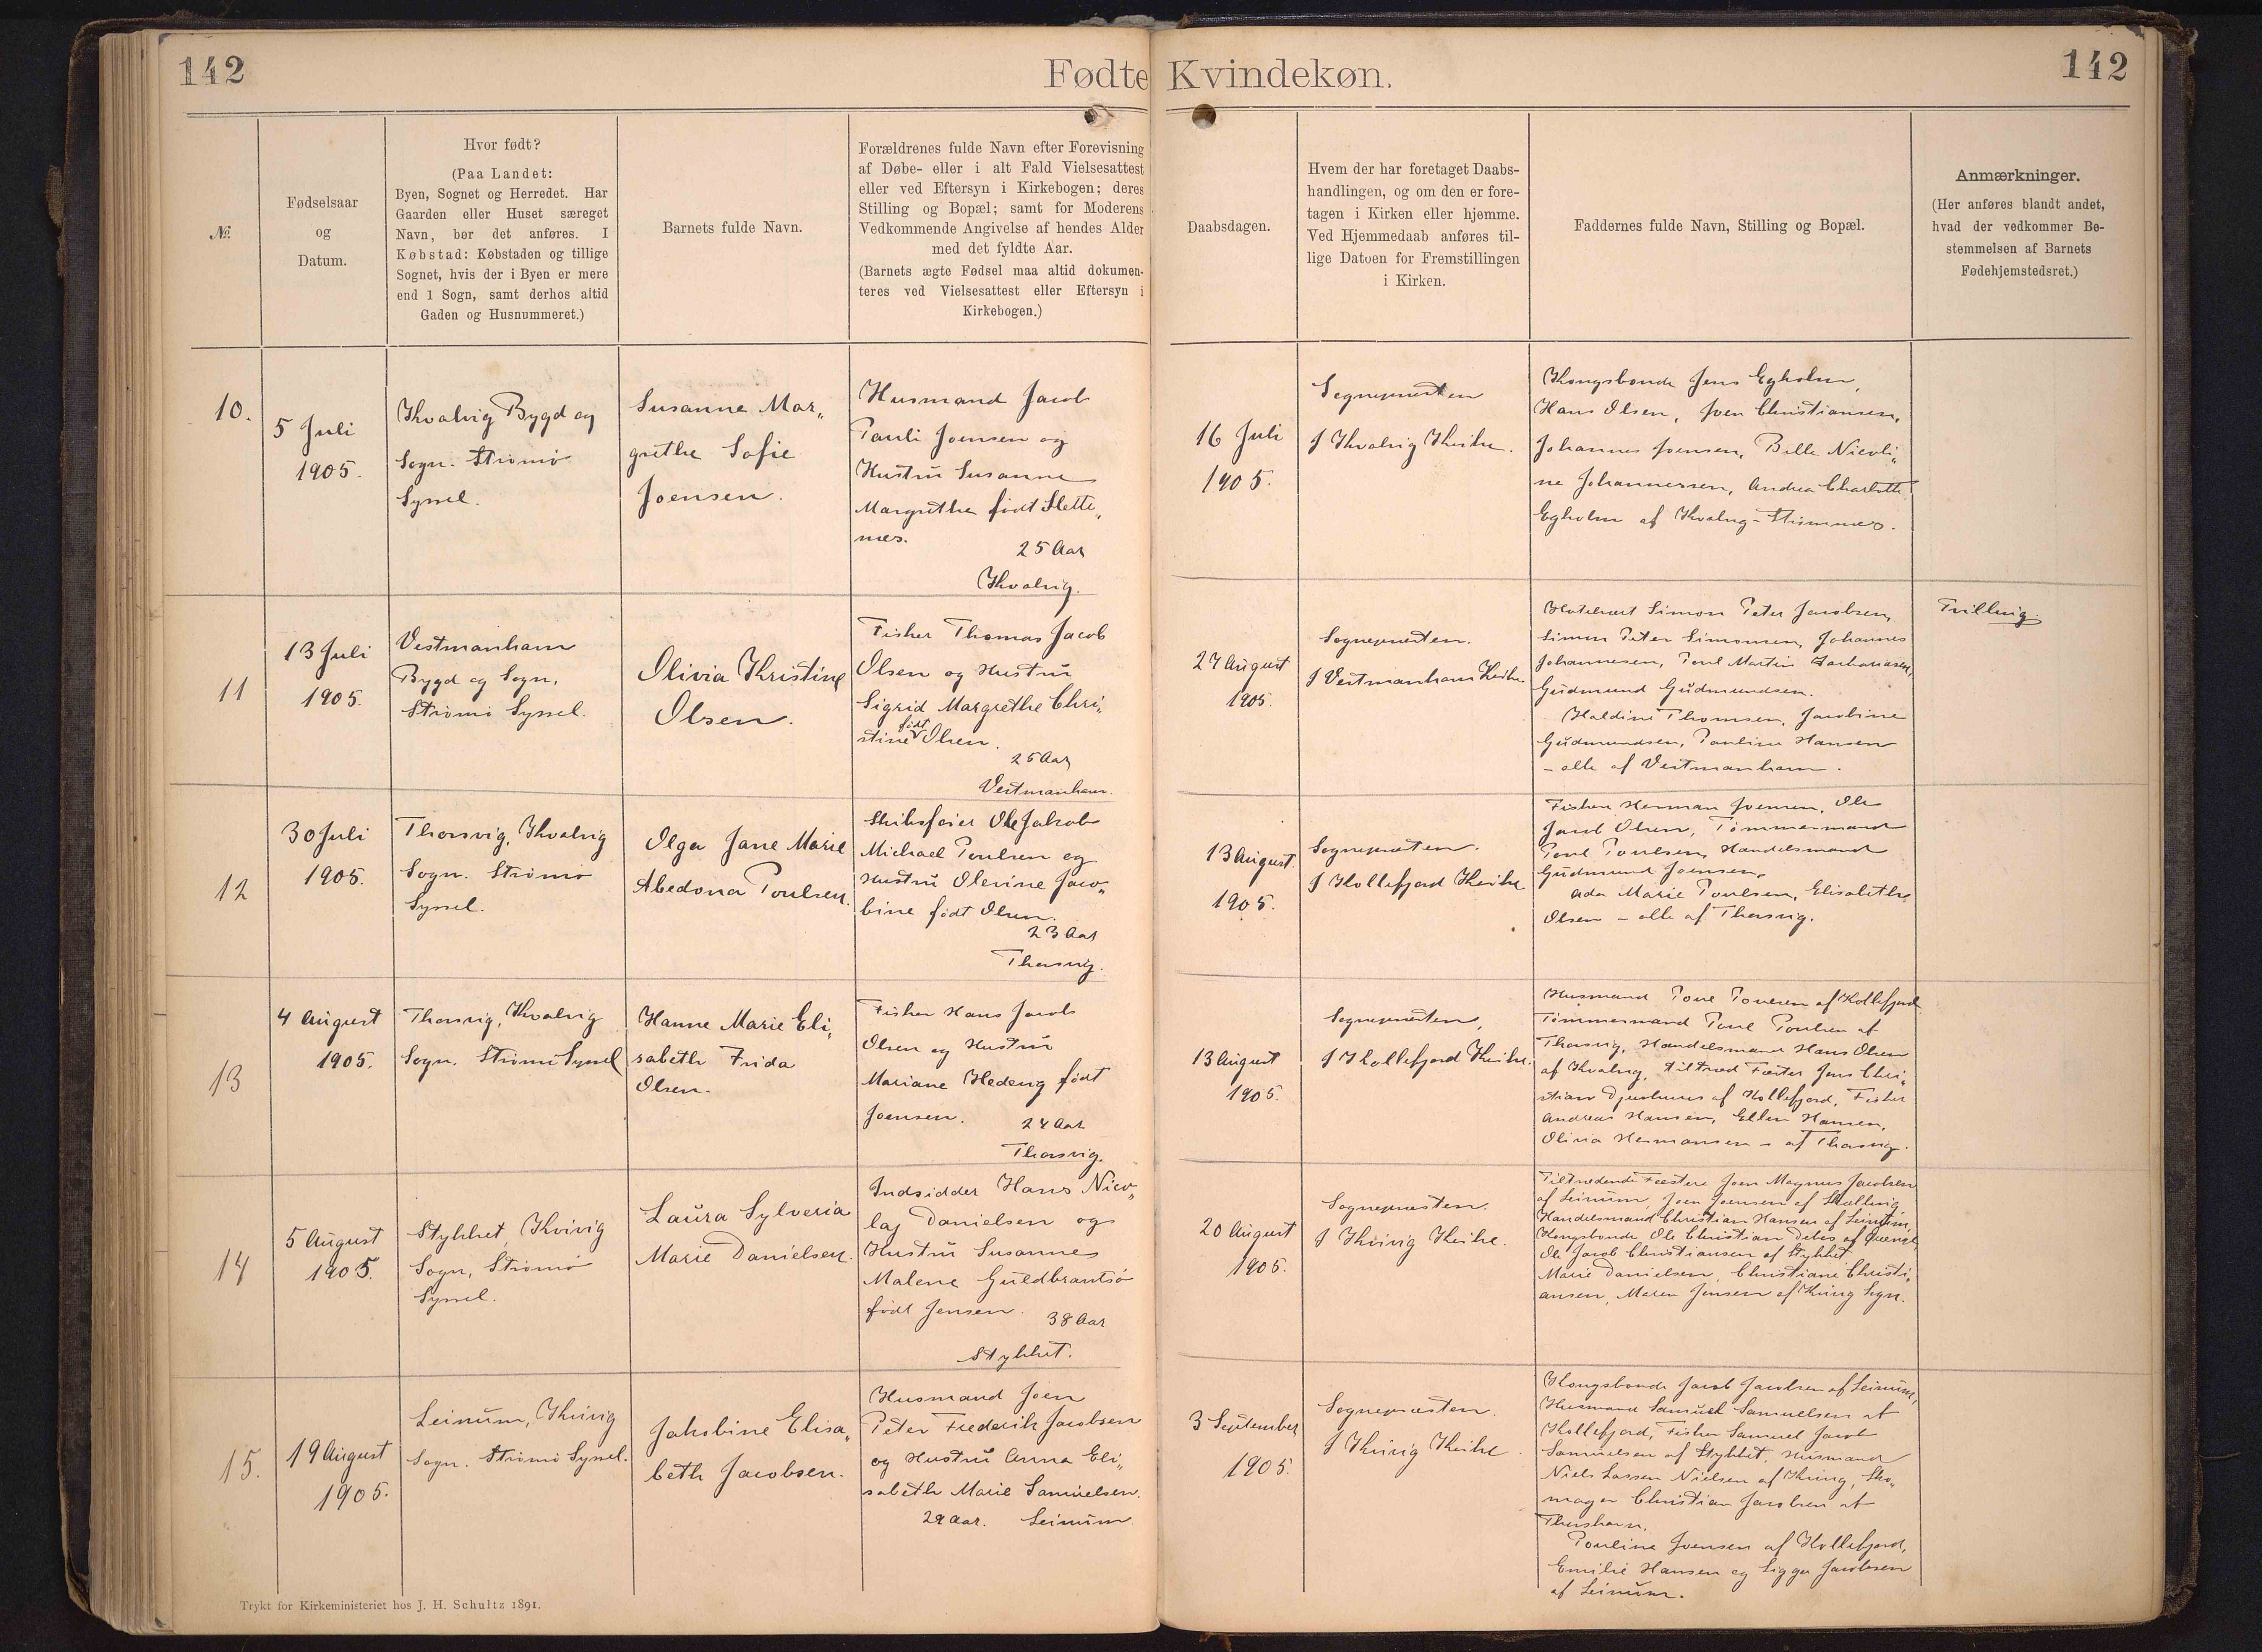 142
Fødte Kvindekøn.
142
№
Fødselsaar
og
Datum.
Hvor født?
(Paa Landet:
Byen, Sognet og Herredet. Har
Gaarden eller Huset særeget
Navn, bør det anføres. I
Købstad: Købstaden og tillige
Sognet, hvis der i Byen er mere
end 1 Sogn, samt derhos altid
Gaden og Husnummeret.)
Barnets fulde Navn.
Forældrenes fulde Navn efter Forevisning
af Døbe- eller i alt Fald Vielsesattest
eller ved Eftersyn i Kirkebogen; deres
Stilling og Bopæl; samt for Moderens
Vedkommende Angivelse af hendes Alder
med det fyldte Aar.
(Barnets ægte Fødsel maa altid dokumen-
teres ved Vielsesattest eller Eftersyn i
Kirkebogen.)
Daabsdagen.
Hvem der har foretaget Daabs-
handlingen, og om den er fore-
tagen i Kirken eller hjemme.
Ved Hjemmedaab anføres til-
lige Datoen for Fremstillingen
i Kirken.
Faddernes fulde Navn, Stilling og Bopæl.
Anmærkninger.
(Her anføres blandt andet,
hvad der vedkommer Be-
stemmelsen af Barnets
Fødehjemstedsret.)
10.
5 Juli
1905.
Kvalvig Bygd og
Sogn. Strømø
Syssel.
Susanne Mar„
grethe Sofie
Joensen.
Husmand Jacob
Pauli Joensen og
Hustrū Susanne
Margrethe født Slette„
næs.
25 Aar
Kvalvig.
16 Juli
1905.
Sognepræsten
I Kvalvig Kirke.
Kongsbonde Jens Egholm,
Hans Olsen, Joen Christiansen,
Johannes Joensen, Bille Nicoli„
ne Johannessen, Andrea Charlotte
Egholm af Kvalvig-Strømnæs.
11
13 Juli
1905.
Vestmanhavn
Bygd og Sogn,
Strømø Syssel.
Olivia Kristine
Olsen.
Fisker Thomas Jacob
Olsen og Hustrū
Sigrid Margrethe Chri„
stine født Olsen.
25 Aar
Vestmanhavn.
27 Aūgust
1905.
Sognepræsten.
I Vestmanhavn Kirke.
Simon Peter Jacobsen,
Simon Peter Simonsen, Johannes
Johannesen, Poul Martin Zachariasen,
Gūdmund Gūdmundsen.
Haldine Thomsen, Jacobine
Gūdmundsen, Pauline Hansen
– alle af Vestmanhavn.
Tvilling.
12
30 Juli
1905.
Thorsvig, Kvalvig
Sogn. Strømø
Syssel.
Olga Jane Marie
Abedona Poulsen.
Ole Jakob
Michael Poulsen og
Hustrū Olevine Jaco„
bine født Olsen.
23 Aar
Thorsvig.
13 Aūgust.
1905.
Sognepræsten.
I Kollefjord Kirke
Fisker Herman Joensen, Ole
Jacob Olsen, Tømmermand
Poul Poulsen, Handelsmand
Gūdmund Joensen,
Ada Marie Poulsen, Elisabeth
Olsen – alle af Thorsvig.
13
4 Aūgust
1905.
Thorsvig, Kvalvig
Sogn. Strømø Syssel
Hanne Marie Eli„
sabeth Frida
Olsen.
Fisker Hans Jacob
Olsen og Hustrū
Mariane Hedevig født
Joensen.
24 Aar
Thorsvig.
13 Aūgust
1905.
Sognepræsten,
I Kollefjord Kirke.
Husmand Poul Poulsen af Kollefjord
Tømmermand Poul Poulsen af
Thorsvig, Handelsmand Hans Olsen
af Kvalvig, tiltræd Fæster Jens Chri„
stian Djurhuus af Kollefjord, Fisker
Andreas Hansen, Ellen Hansen,
Olivia Hermansen – af Thorsvig.
14
5 Aūgust
1905.
Stykket, Kvivig
Sogn, Strømø
Syssel.
Laūra Sylveria
Marie Danielsen.
Indsidder Hans Nico„
laj Danielsen og
Hustrū Susanne
Malene Guldbrantsø
født Jensen.
38 Aar
Stykket.
20 Aūgust
1905.
Sognepræsten.
I Kvivig Kirke.
Tiltrædende Fæstere Joen Magnus Jacobsen
af Leinum, Joen Joensen af Skælling,
Handelsmand Christian Hansen af Leinūm,
Kongsbonde Ole Christian Debes af
Ole Jacob Christiansen af Stykket
Marie Danielsen, Christiane Christi„
ansen, Maren Jensen af Kvivig Sogn.
15.
19 Aūgust
1905.
Leinūm, Kvivig
Sogn. Strømø Syssel.
Jakobine Elisa„
beth Jacobsen.
Husmand Joen
Peter Frederik Jacobsen
og Hustrū Anna Eli„
sabeth Marie Samūelsen.
29 Aar. Leinūm
3 September
1905.
Sognepræsten.
I Kvivig Kirke.
Kongsbonde Jacob Jacobsen af Leinum,
Husmand Samūel Samuelsen af
Kollefjord, Fisker Samuel Jacob
Samuelsen af Stykket, Husmand
Niels Lassen Nielsen af Kvivig, Sko„
mager Christian Jacobsen af
Thorshavn.
Pouline Joensen af Kollefjord,
Emilie Hansen og Sigga Jacobsen
af Leinum.
Trykt for Kirkeministeriet hos J. H. Schultz 1891.